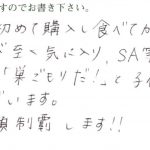 すのでお書き下さい。
初めて購入し食べてか
ド至く気に入り、SA等
「巣ごもりだ!」と子化
ざいます。
頂制覇します!!